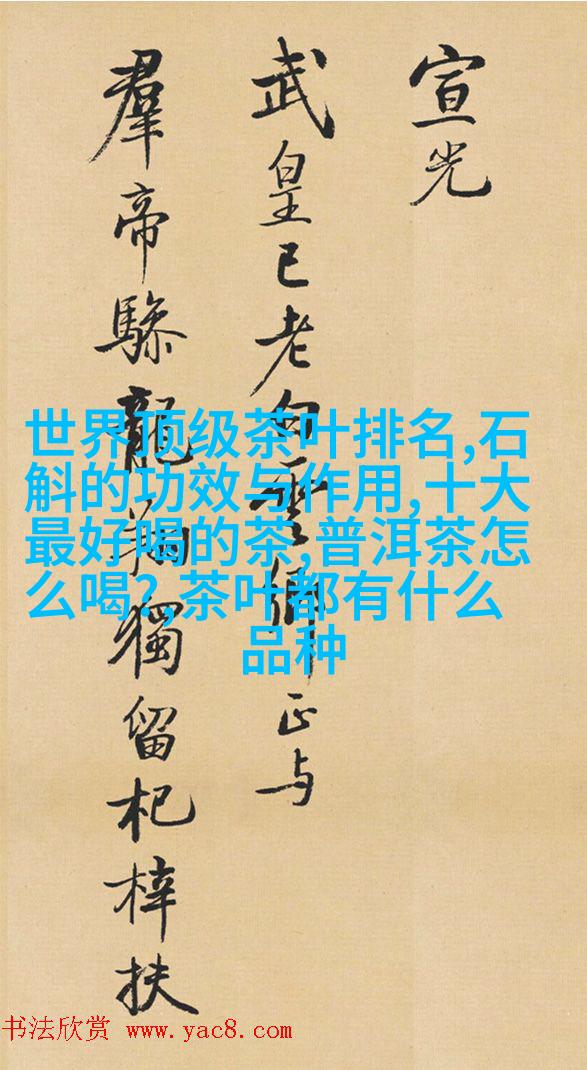 宣光
武皇已老白雲鄉正与
羣帝驂龍翔獨留杞梓扶
世界顶级茶叶排名,石
斛的功效与作用,十大
最好喝的茶,普洱茶怎
么喝?,茶叶都有什么
品种
书法欣赏 www.yac8.com